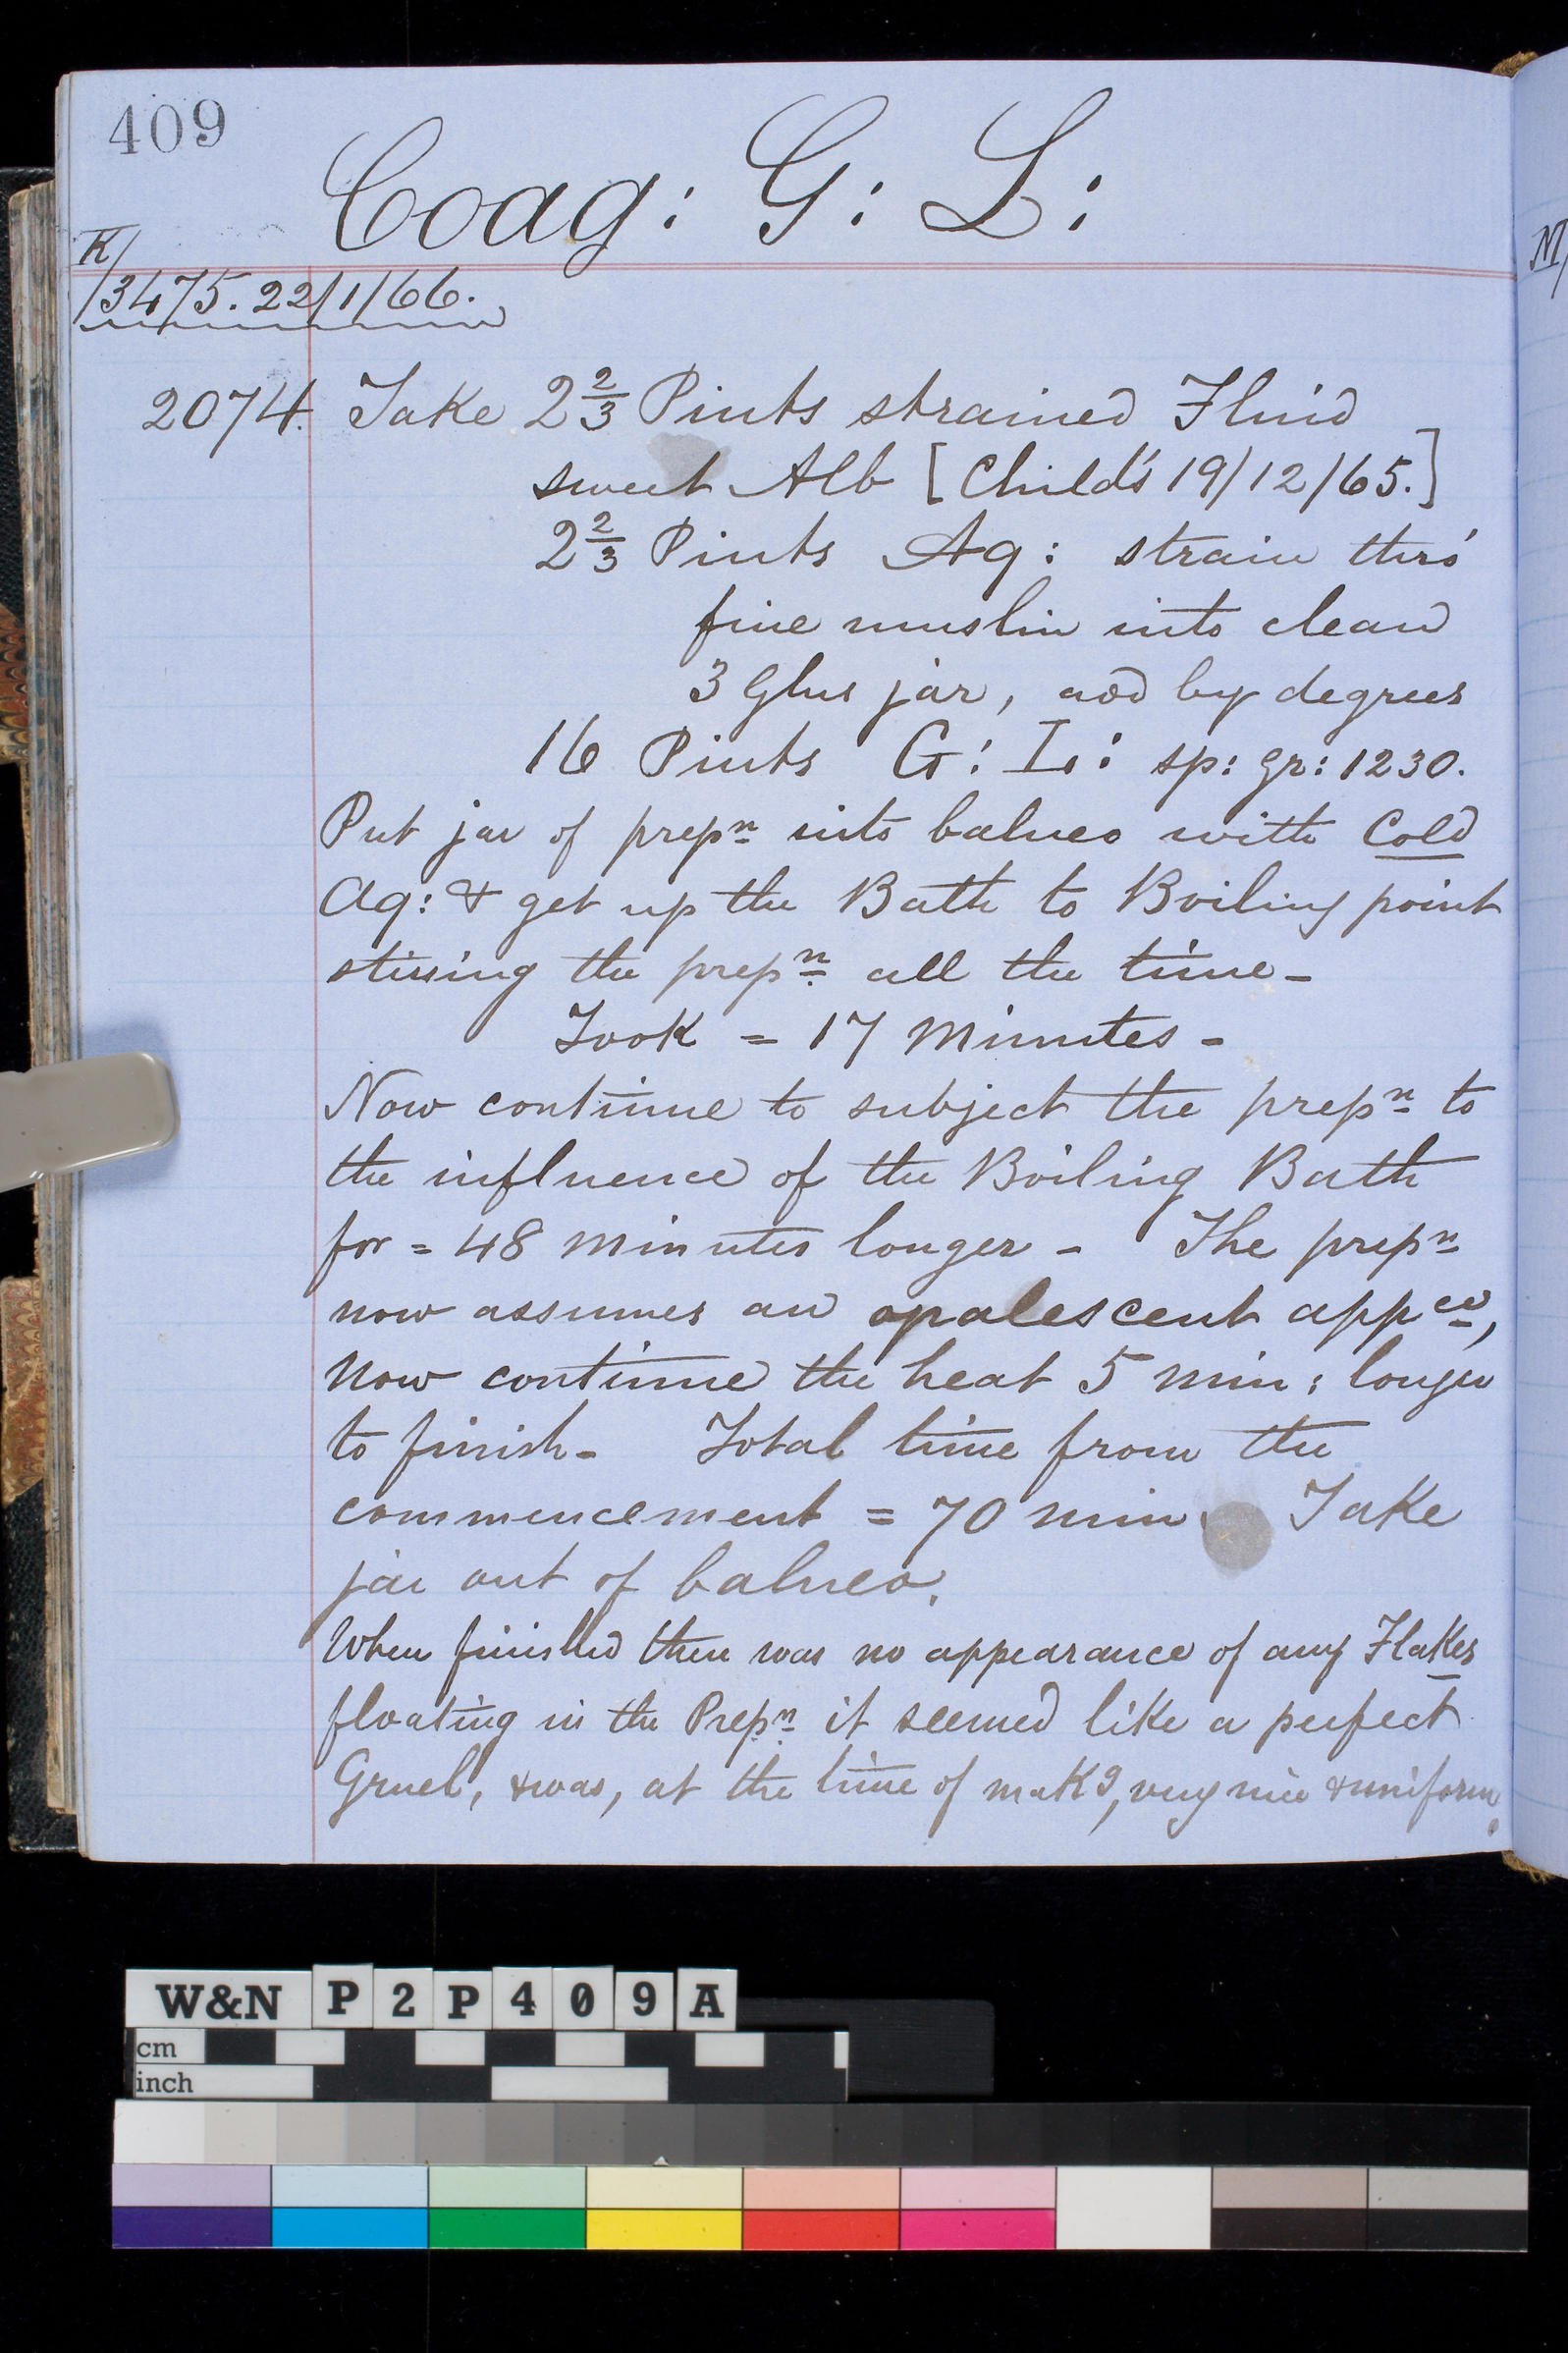 409
Coag: G: L:
K/
/3475. 22/1/66.
2074. Take 2 2/3 Pints strained Fluid
sweet Alb [Child's 19/12/65.]
2 2/3 Pints Aq: strain thro'
fine muslin into clean
3 Glns jar, add by degrees
16 Pints G: L: sp: gr: 1230.
Put jar of prepn into balneo with Cold
Aq: & get up the Bath to Boiling point
stirring the prepn all the time -
Took = 17 minutes -
Now continue to subject the prepn to
the influence of the Boiling Bath
for = 48 minutes longer - The prepn
now assumes an opalescent appce,
Now continue the heat 5 min: longer
to finish - Total time from the
commencement = 70 min. Take
jar out of balneo.
When finished there was no appearance of any Flakes
floating in the Prepn it seemed like a perfect
Gruel, & was, at the time of makg, very nice & uniform.
M/
W&N P2P409A
cm
inch